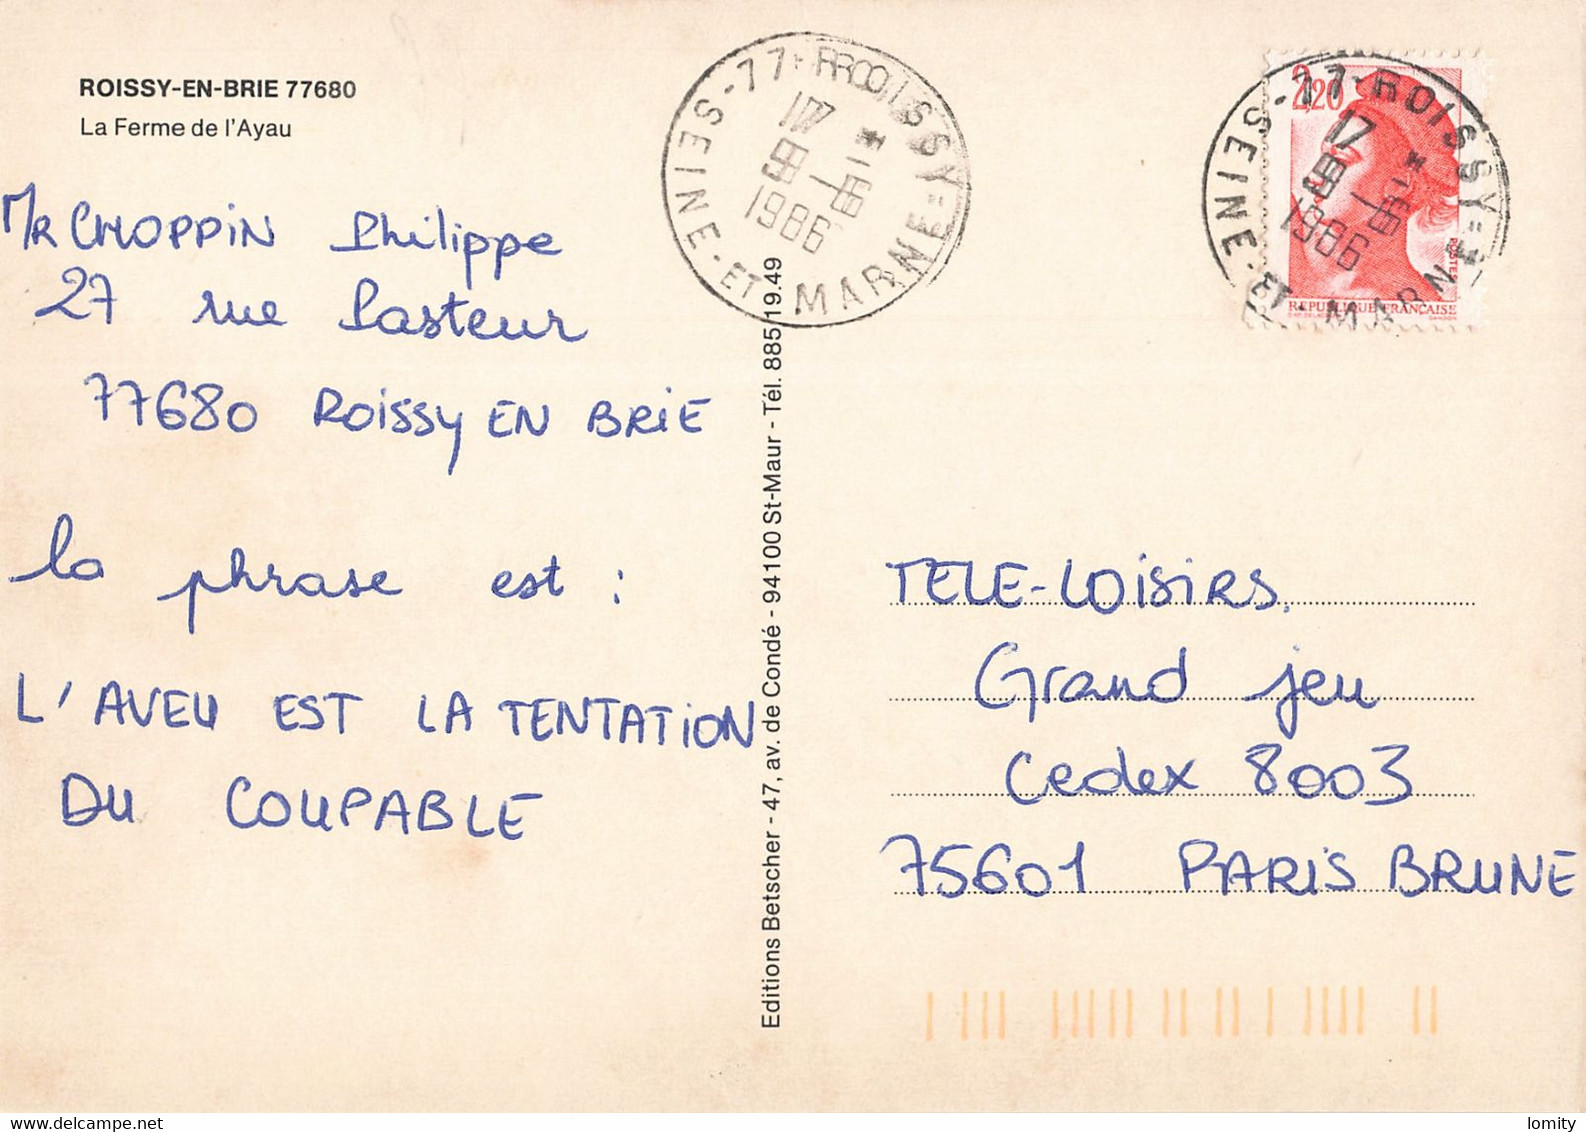 ROISSY-EN-BRIE 77680
La Ferme de l'Ayau
MR CHOPPIN Philippe
27 rue Pasteur
77680 ROISSY EN BRIE
la phrase est :
L'AVEU EST LA TENTATION
DU COUPABLE
Editions Betscher - 47, av. de Condé - 94100 St-Maur - Tél. 885 19.49
77-ROISSY-E
17 H
1986
SEINE-ET MARNE
2,20
POSTES
REPUBLIQUE FRANÇAISE
77-ROISSY-E
17 H
1986
SEINE-ET MARNE
TELE-LOISIRS.
Grand jeu
Cedex 8003
75601 PARIS BRUNE
lomity